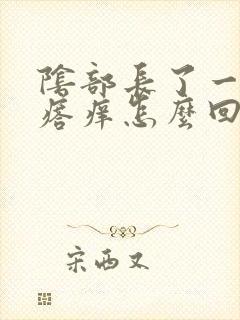 陰部長了一
痞痒怎麼回
宋西又